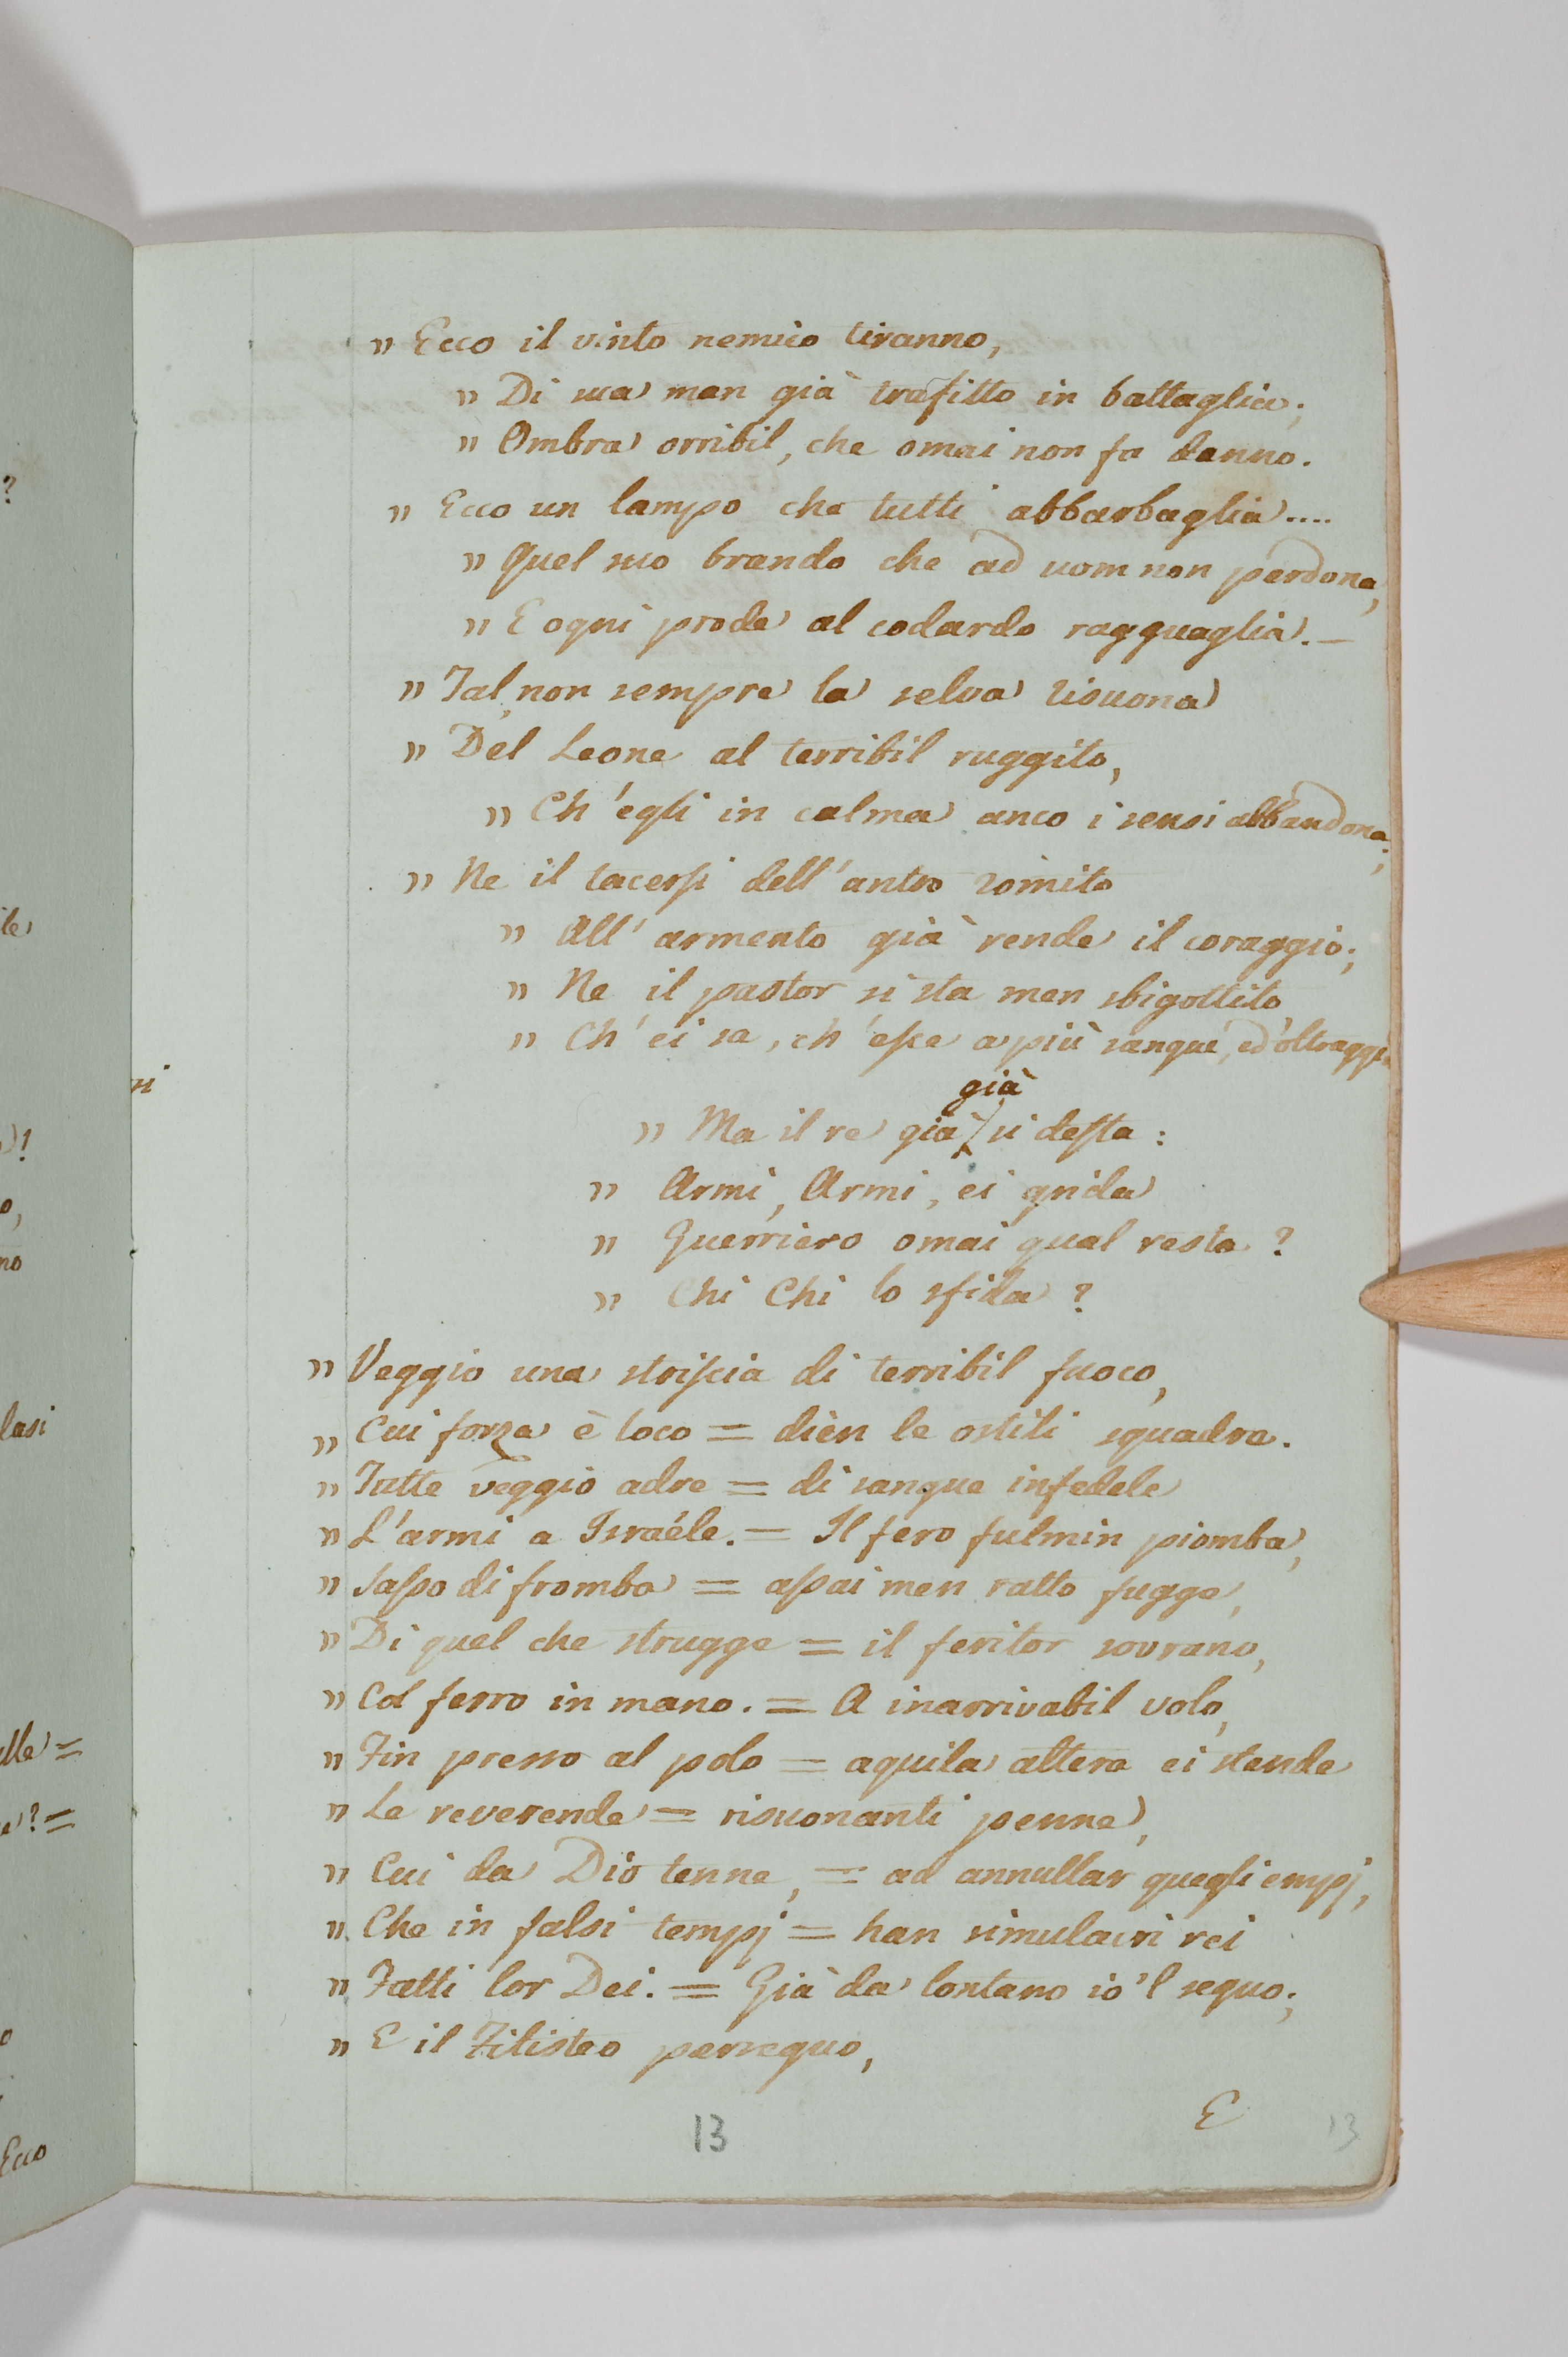 " Ecco il vinto nemico tiranno,
" Di sua man già trafitto in battaglia;
" Ombra orribil, che omai non fa danno.
" Ecco un lampo che tutti abbarbaglia....
" Quel suo brando che ad uom non perdona,
" E ogni prode al codardo ragguaglia. –
" Tal, non sempre la selva risuona
" Del Leone al terribil ruggito,
" Ch'egli in calma anco i sensi abbandona;
" Ne il tacersi dell'antro romito
" All'armento già rende il coraggio;
" Ne il pastor si sta men sbigottito
" Ch'ei sa, ch'esce a più sangue, ed oltraggio
già
" Ma il re già si desta:
" Armi, Armi, ei grida
" Guerriero omai qual resta?
" Chi Chi lo sfida?
" Veggio una striscia di terribil fuoco,
" Cui forza è loco = dièn le ostili squadre.
" Tutte veggio adre = di sangue infedele
" L'armi a Israéle. = Il fero fulmin piomba,
" Sasso di fromba = assai men ratto fugge,
" Di quel che strugge = il feritor sovrano,
" Col ferro in mano. = A inarrivabil volo,
" Fin presso al polo = aquila altera ei stende
" Le reverende = risuonanti penne,
" Cui da Dio tenne, = ad annullar quegli empj,
" Che in falsi tempj = han simulacri rei
" Fatti lor Dei. = Già da lontano io'l seguo;
" E il Filisteo perseguo,
E
13
13
?
le
)!
o,
no
lasi
lle =
e? =
o
Ecco
ni